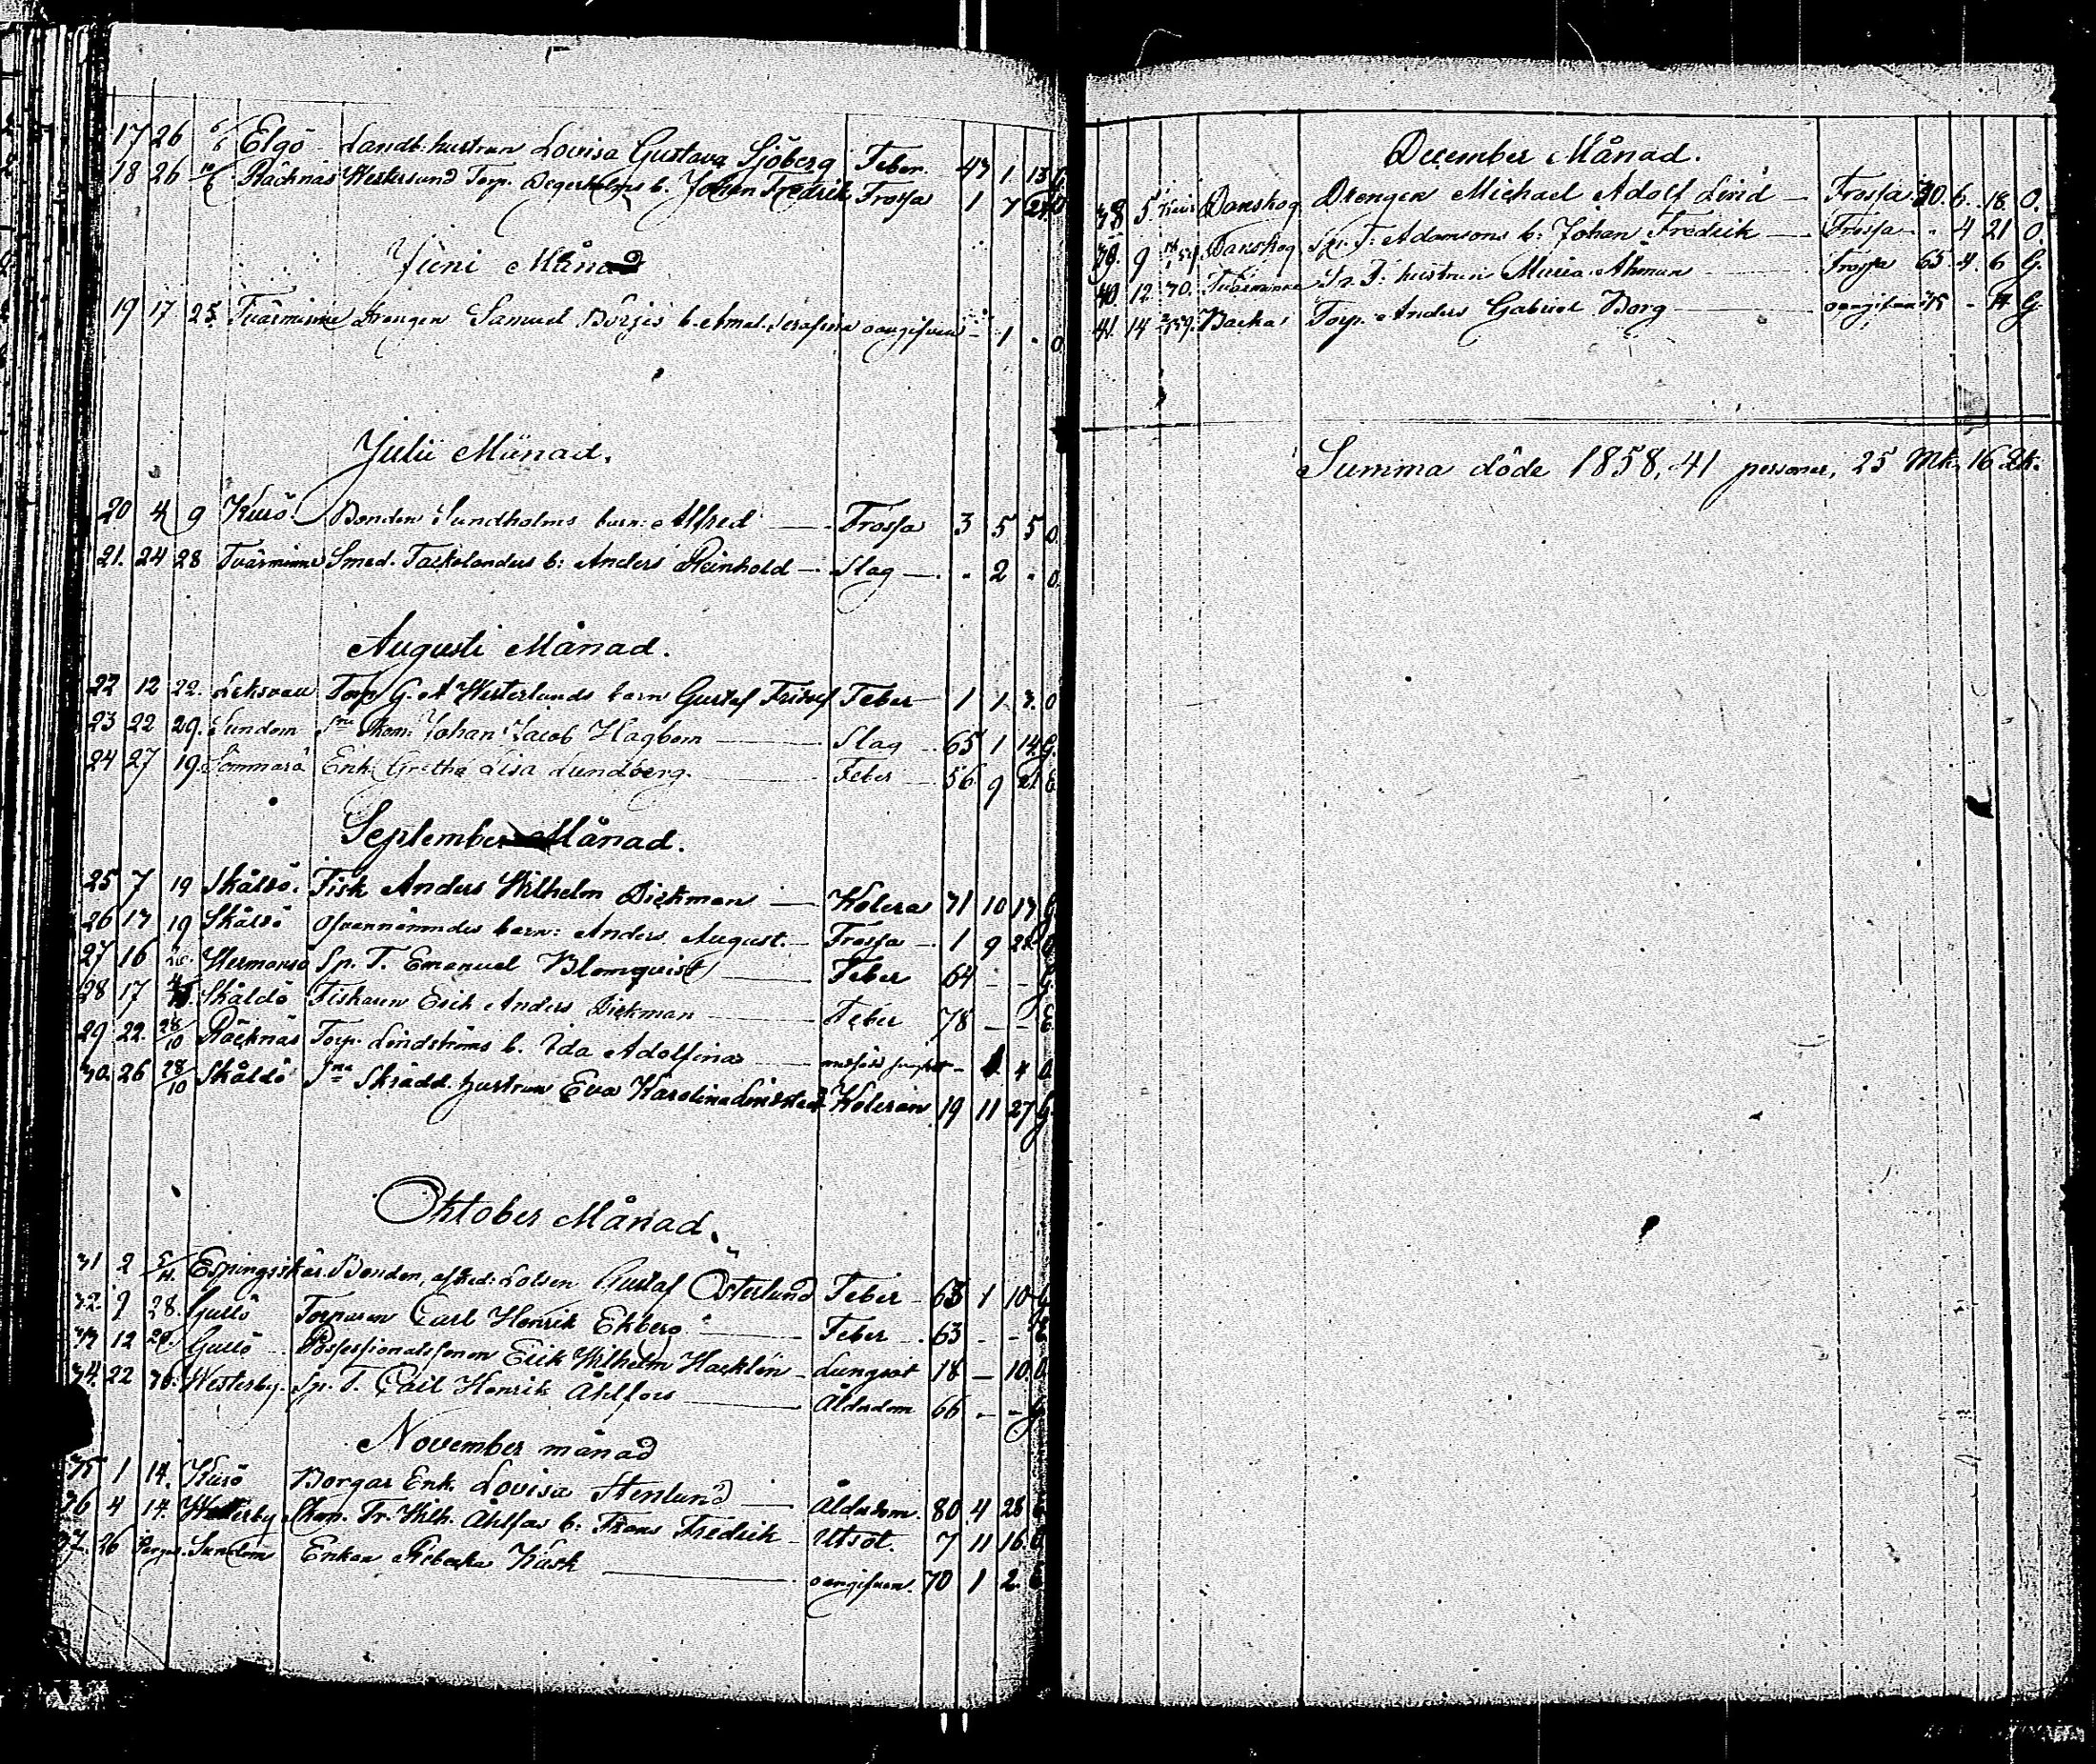 17 26 6/6 Elgö Landb. hustrun Lovisa Gustava Sjöberg Feber 47 1 13
18 26 Räcknäs Westersund Torp. Degerholms b. Johan Fredrik Frossa 1 7 24 O
Juni Månad
19 17 25. Tvärminne Drengen Samuel Börjes b. Amal. Serafina oangifven - 1 - O
Julii Månad.
20 4 9 Kusö Bonden Sundholms barn: Alfred Frossa 3 5 5 O.
21. 24 28 Tvärminne Smed. Tackolanders b: Anders Reinhold Slag - 2 - O.
Augusti Månad.
22 12 22. Leksvall Torp G. A Westerlunds barn Gustaf Fridolf Feber 1 1 3. O
23 22 29. Sundom Skom. Johan Jacob Hagbom Slag 65 1 14. G.
24 27 19. Sommarö Enk. Gretha Lisa Lundberg. Feber 56. 9 21 E
September Månad.
25 7 19 Skåldö. Fisk Anders Wilhelm Dickman Kolera 71 10 17 G
26 17 19 Skåldö Ofvannämndes barn: Anders August. Frossa 1 9 22 O
27 16 26. Hermansö Sp. T. Emanuel Blomqvist Feber 64 - - G.
28 17 Skåldö Fiskaren Erik Anders Dickman Feber 78 - - E.
29 22. 28/10 Räcknäs Torp. Lindströms b. Ida Adolfina - 1 4 O.
30. 26 28/10 Skåldö Skrädd. hustrun Eva Karolina Lindstedt Koleran 19 11 27 G.
Oktober Månad.
31 2 5/11. Espingsskär. Bonden, afsked: Lotsen Gustaf Österlund Feber 63 1 10 G
32. 9 28. Gullö Torparen Carl Henrik Ekberg Feber 63 - - E
33 12 28. Gullö Possessionatssonen Erik Wilhelm Hacklin Lungsot 18 - 10. O.
34. 22 30. Westerby. Sp. T. Carl Henrik Åhlfors Ålderdom 66 - - G
November månad
35 1 14. Kusö Borgar Enk. Lovisa Stenlund Ålderdom. 80 4 28 E
36 4 14. Westerby Skom. Fr. Wilh. Åhlfors b: Frans Fredrik Utsot. 7 11 16. O
37. 26 Sundom Enkan Rebecka Kask oangifven. 70 1 2. E
December Månad.
38 5 Danskog Drengen Michael Adolf Lind Frossa 30. 6. 18 O.
39. 9 Danskog Sp. T: Adamsons b: Johan Fredrik Frossa - 4 21 O.
40. 12. 30. Tvärminne Sp. T: hustrun Maria Åhman Frossa 65. 4. 6 G.
41. 14 Backa Torp. Anders Gabriel Borg oangifven 45 - 14 G
Summa döde 1858, 41 personer, 25 Mk, 16 Qk.